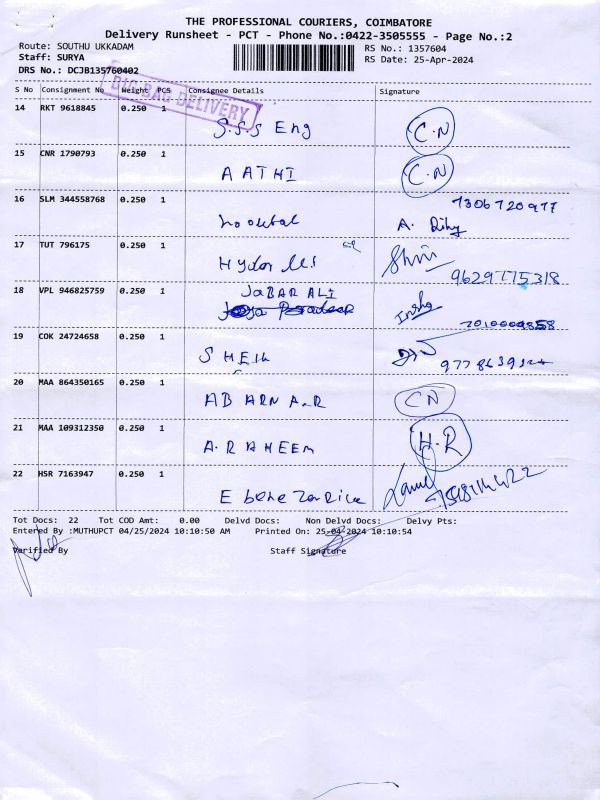 THE PROFESSIONAL COURIERS, COIMBATORE
Delivery Runsheet - PCT - Phone No.:0422-3505555 - Page No.:2
Route: SOUTHU UKKADAM
RS No.: 1357604
Staff: SURYA
RS Date: 25-Apr-2024
DRS No.: DCJB135760402
BIG BAG DELIVERY
S No Consignment No Weight PCS Consignee Details Signature
14 RKT 9618845 0.250 1
S.S.S Eng C.N
15 CNR 1790793 0.250 1
AATHI C.N
16 SLM 344558768 0.250 1 7306720977
A.
17 TUT 796175 0.250 1
9629775318
18 VPL 946825759 0.250 1 JABAR ALI
19 COK 24724658 0.250 1
SHEIK
20 MAA 864350165 0.250 1
CN
21 MAA 109312350 0.250 1
A.RAHEEM H.R
22 HSR 7163947 0.250 1
Tot Docs: 22 Tot COD Amt: 0.00 Delvd Docs: Non Delvd Docs: Delvy Pts:
Entered By :MUTHUPCT 04/25/2024 10:10:50 AM Printed On: 25-04-2024 10:10:54
Verified By Staff Signature